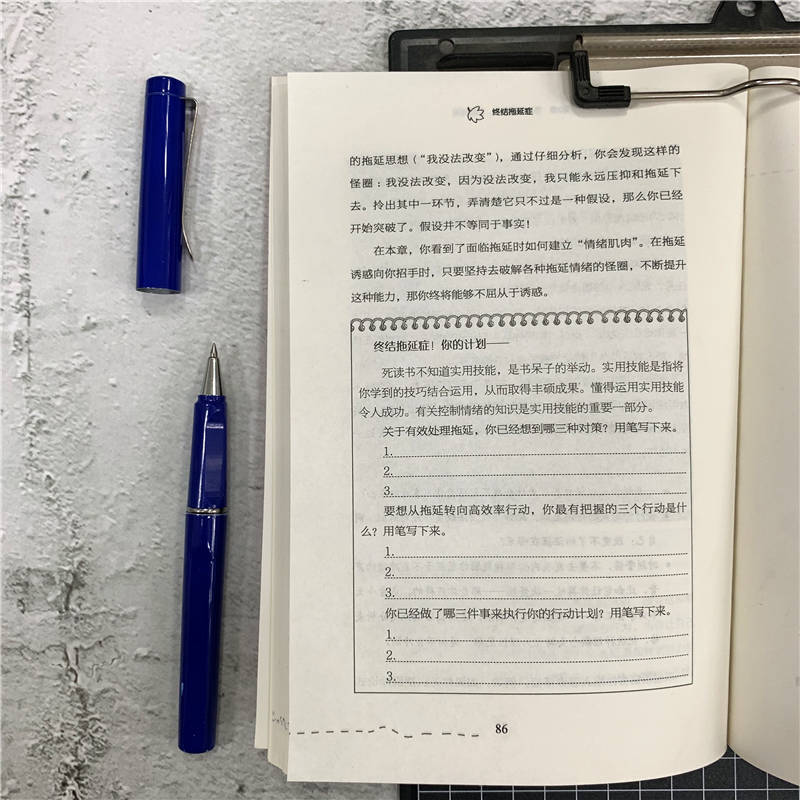 终结拖延症
的拖延思想（“我没法改变”），通过仔细分析，你会发现这样的
怪圈：我没法改变，因为没法改变，我只能永远压抑和拖延下
去。拎出其中一环节，弄清楚它只不过是一种假设，那么你已经
开始突破了。假设并不等同于事实！
在本章，你看到了面临拖延时如何建立“情绪肌肉”。在拖延
诱惑向你招手时，只要坚持去破解各种拖延情绪的怪圈，不断提升
这种能力，那你终将能够不屈从于诱惑。
终结拖延症！你的计划——
死读书不知道实用技能，是书呆子的举动。实用技能是指将
你学到的技巧结合运用，从而取得丰硕成果。懂得运用实用技能
令人成功。有关控制情绪的知识是实用技能的重要一部分。
关于有效处理拖延，你已经想到哪三种对策？用笔写下来。
1.
2.
3.
要想从拖延转向高效率行动，你最有把握的三个行动是什
么？用笔写下来。
1.
2.
3.
你已经做了哪三件事来执行你的行动计划？用笔写下来。
1.
2.
3.
86